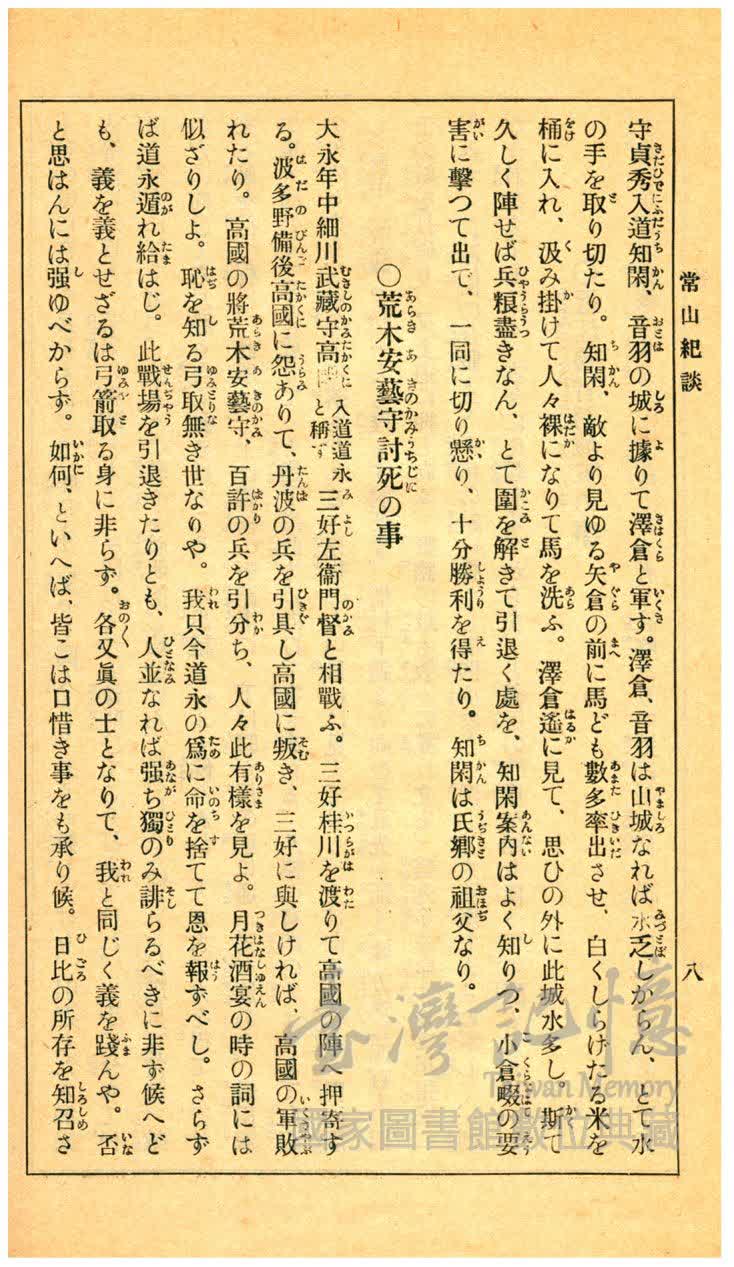 常山紀談
八
守貞秀入道知閑、音羽の城に據りて澤倉と軍す。澤倉、音羽は山城なれば水乏しからん、とて水
の手を取り切たり。知閑、敵より見ゆる矢倉の前に馬ども數多率出させ、白くしらけたる米を
桶に入れ、汲み掛けて人々裸になりて馬を洗ふ。澤倉遙に見て、思ひの外に此城水多し。斯て
久しく陣せば兵粮盡きなん、とて圍を解きて引退く處を、知閑案内はよく知りつ、小倉畷の要
害に擊つて出で、一同に切り懸り、十分勝利を得たり。知閑は氏鄕の祖父なり。
〇荒木安藝守討死の事
大永年中細川武藏守高國入道道永と稱す三好左衞門督と相戰ふ。三好桂川を渡りて高國の陣へ押寄す
る。波多野備後高國に怨ありて、丹波の兵を引具し高國に叛き、三好に與しければ、高國の軍敗
れたり。高國の將荒木安藝守、百許の兵を引分ち、人々此有樣を見よ。月花酒宴の時の詞には
似ざりしよ。恥を知る弓取無き世なりや。我只今道永の爲に命を捨てて恩を報ずべし。さらず
ば道永遁れ給はじ。此戰場を引退きたりとも、人並なれば强ち獨のみ誹らるべきに非ず候へど
も、義を義とせざるは弓箭取る身に非らず。各又眞の士となりて、我と同じく義を踐んや。否
と思はんには强ゆべからず。如何、といへば、皆こは口惜き事をも承り候。日比の所存を知召さ
臺灣記憶
Taiwan Memory
國家圖書館數位典藏